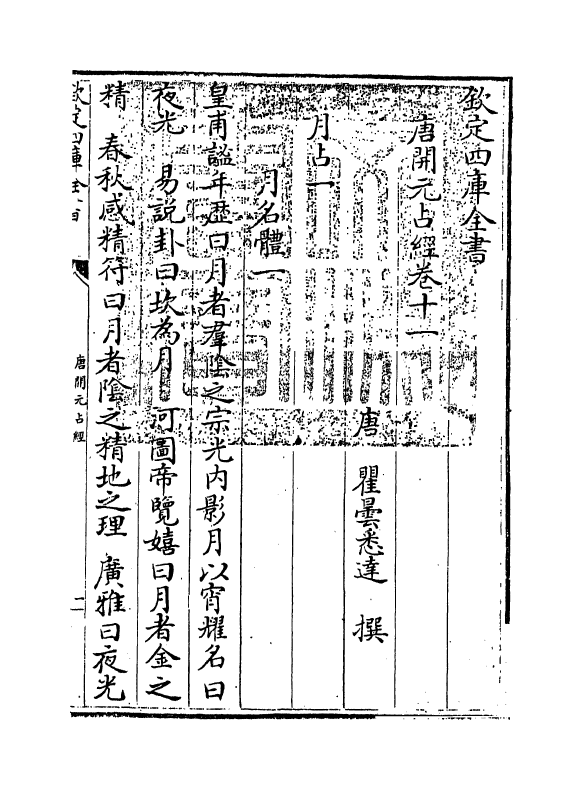 欽定四庫全書
唐開元占經卷十一
唐 瞿曇悉達 撰
月占一
月名體一
皇甫謐年歴曰月者羣隂之宗光内影月以宵耀名曰
夜光 易說卦曰坎為月 河圖帝覽嬉曰月者金之
精 春秋感精符曰月者隂之精地之理 廣雅曰夜光
欽定四庫全書
唐開元占經
二